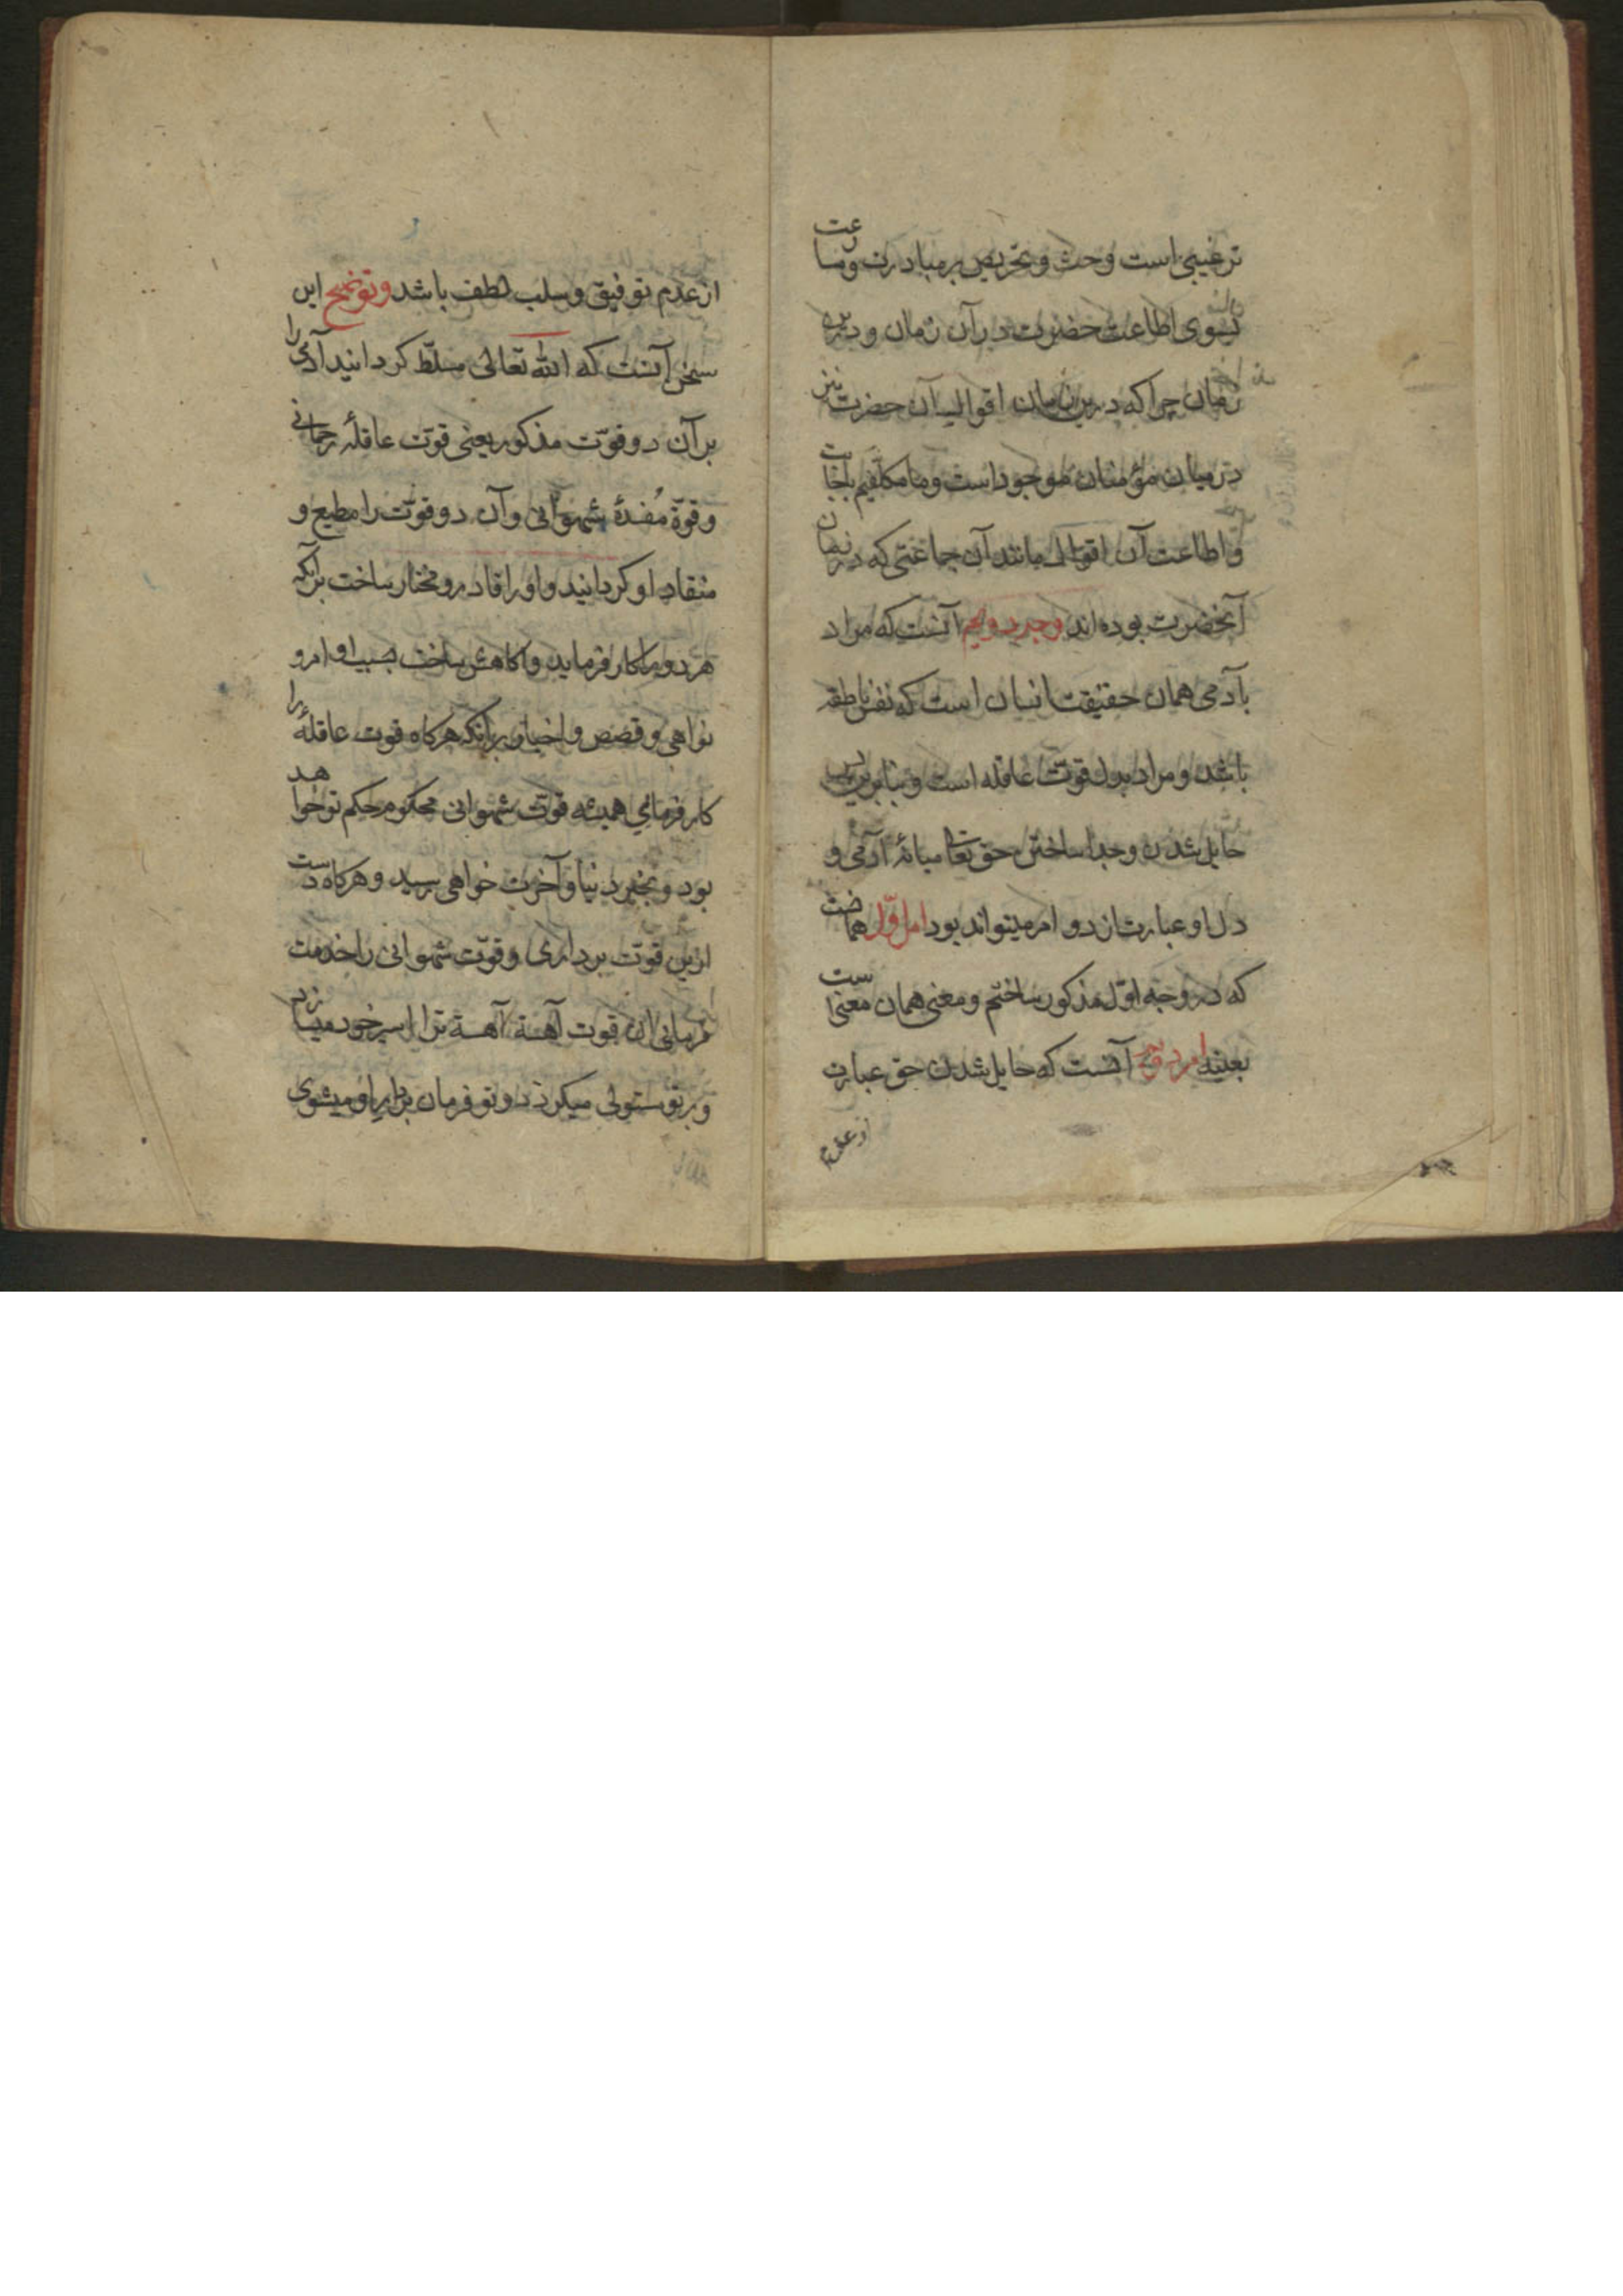 ترغیبی است وحث و تحریص بر مبادرت ومسارعت
بسوی اطاعت حضرت در آن زمان ودرین
زمان چرا که درین زمان اقوال آن حضرت نیز
در میان مؤمنان موجود است وما مکلفیم باجابت
و اطاعت آن اقوال مانند آن جماعتی که در زمان
آنحضرت بوده اند وجه دویم آنست که مراد
بآدمی همان حقیقت انسان است که نفس ناطقه
باشد و مراد بدل قوت عاقله است و بنابرین
حایل شدن وجدا ساختن حق تعا میانهٔ آدمی و
دل او عبارت از دو امر میتواند بود امر اوّل همانست
که در وجه اوّل مذکور ساختم ومعنی همان معنی است
بعینه امر دویم آنست که حایل شدن حق عبارت
از عدم
از عدم توفیق و سلب لطف باشد وتوضیح این
سخن آنست که الله تعالی مسلّط کردانید آدمی را
بر آن دو قوّت مذکور یعنی قوت عاقلهٔ رحمانی
و قوّة مُفسدهٔ شهوانی وآن دو قوّت را مطیع و
منقاد او کردانید و او را قادر و مختار ساخت برآنکه
هر دو را کار فرماید و اکاهش ساخت بسبب اوامر و
نواهی و قصص و اخبار برآنکه هرکاه قوت عاقلهٔ را
کار فرمائی همیشه قوّت شهوانی محکوم حکم تو خواهد
بود و بخیر دنیا و آخرت خواهی رسید و هرکاه دست
ازین قوّت برداری و قوّت شهوانی را خدمت
فرمائی آن قوت آهسته آهسته ترا اسیر خود میسازد
و بر تو مستولی میکردد و تو فرمان بردار او میشوی